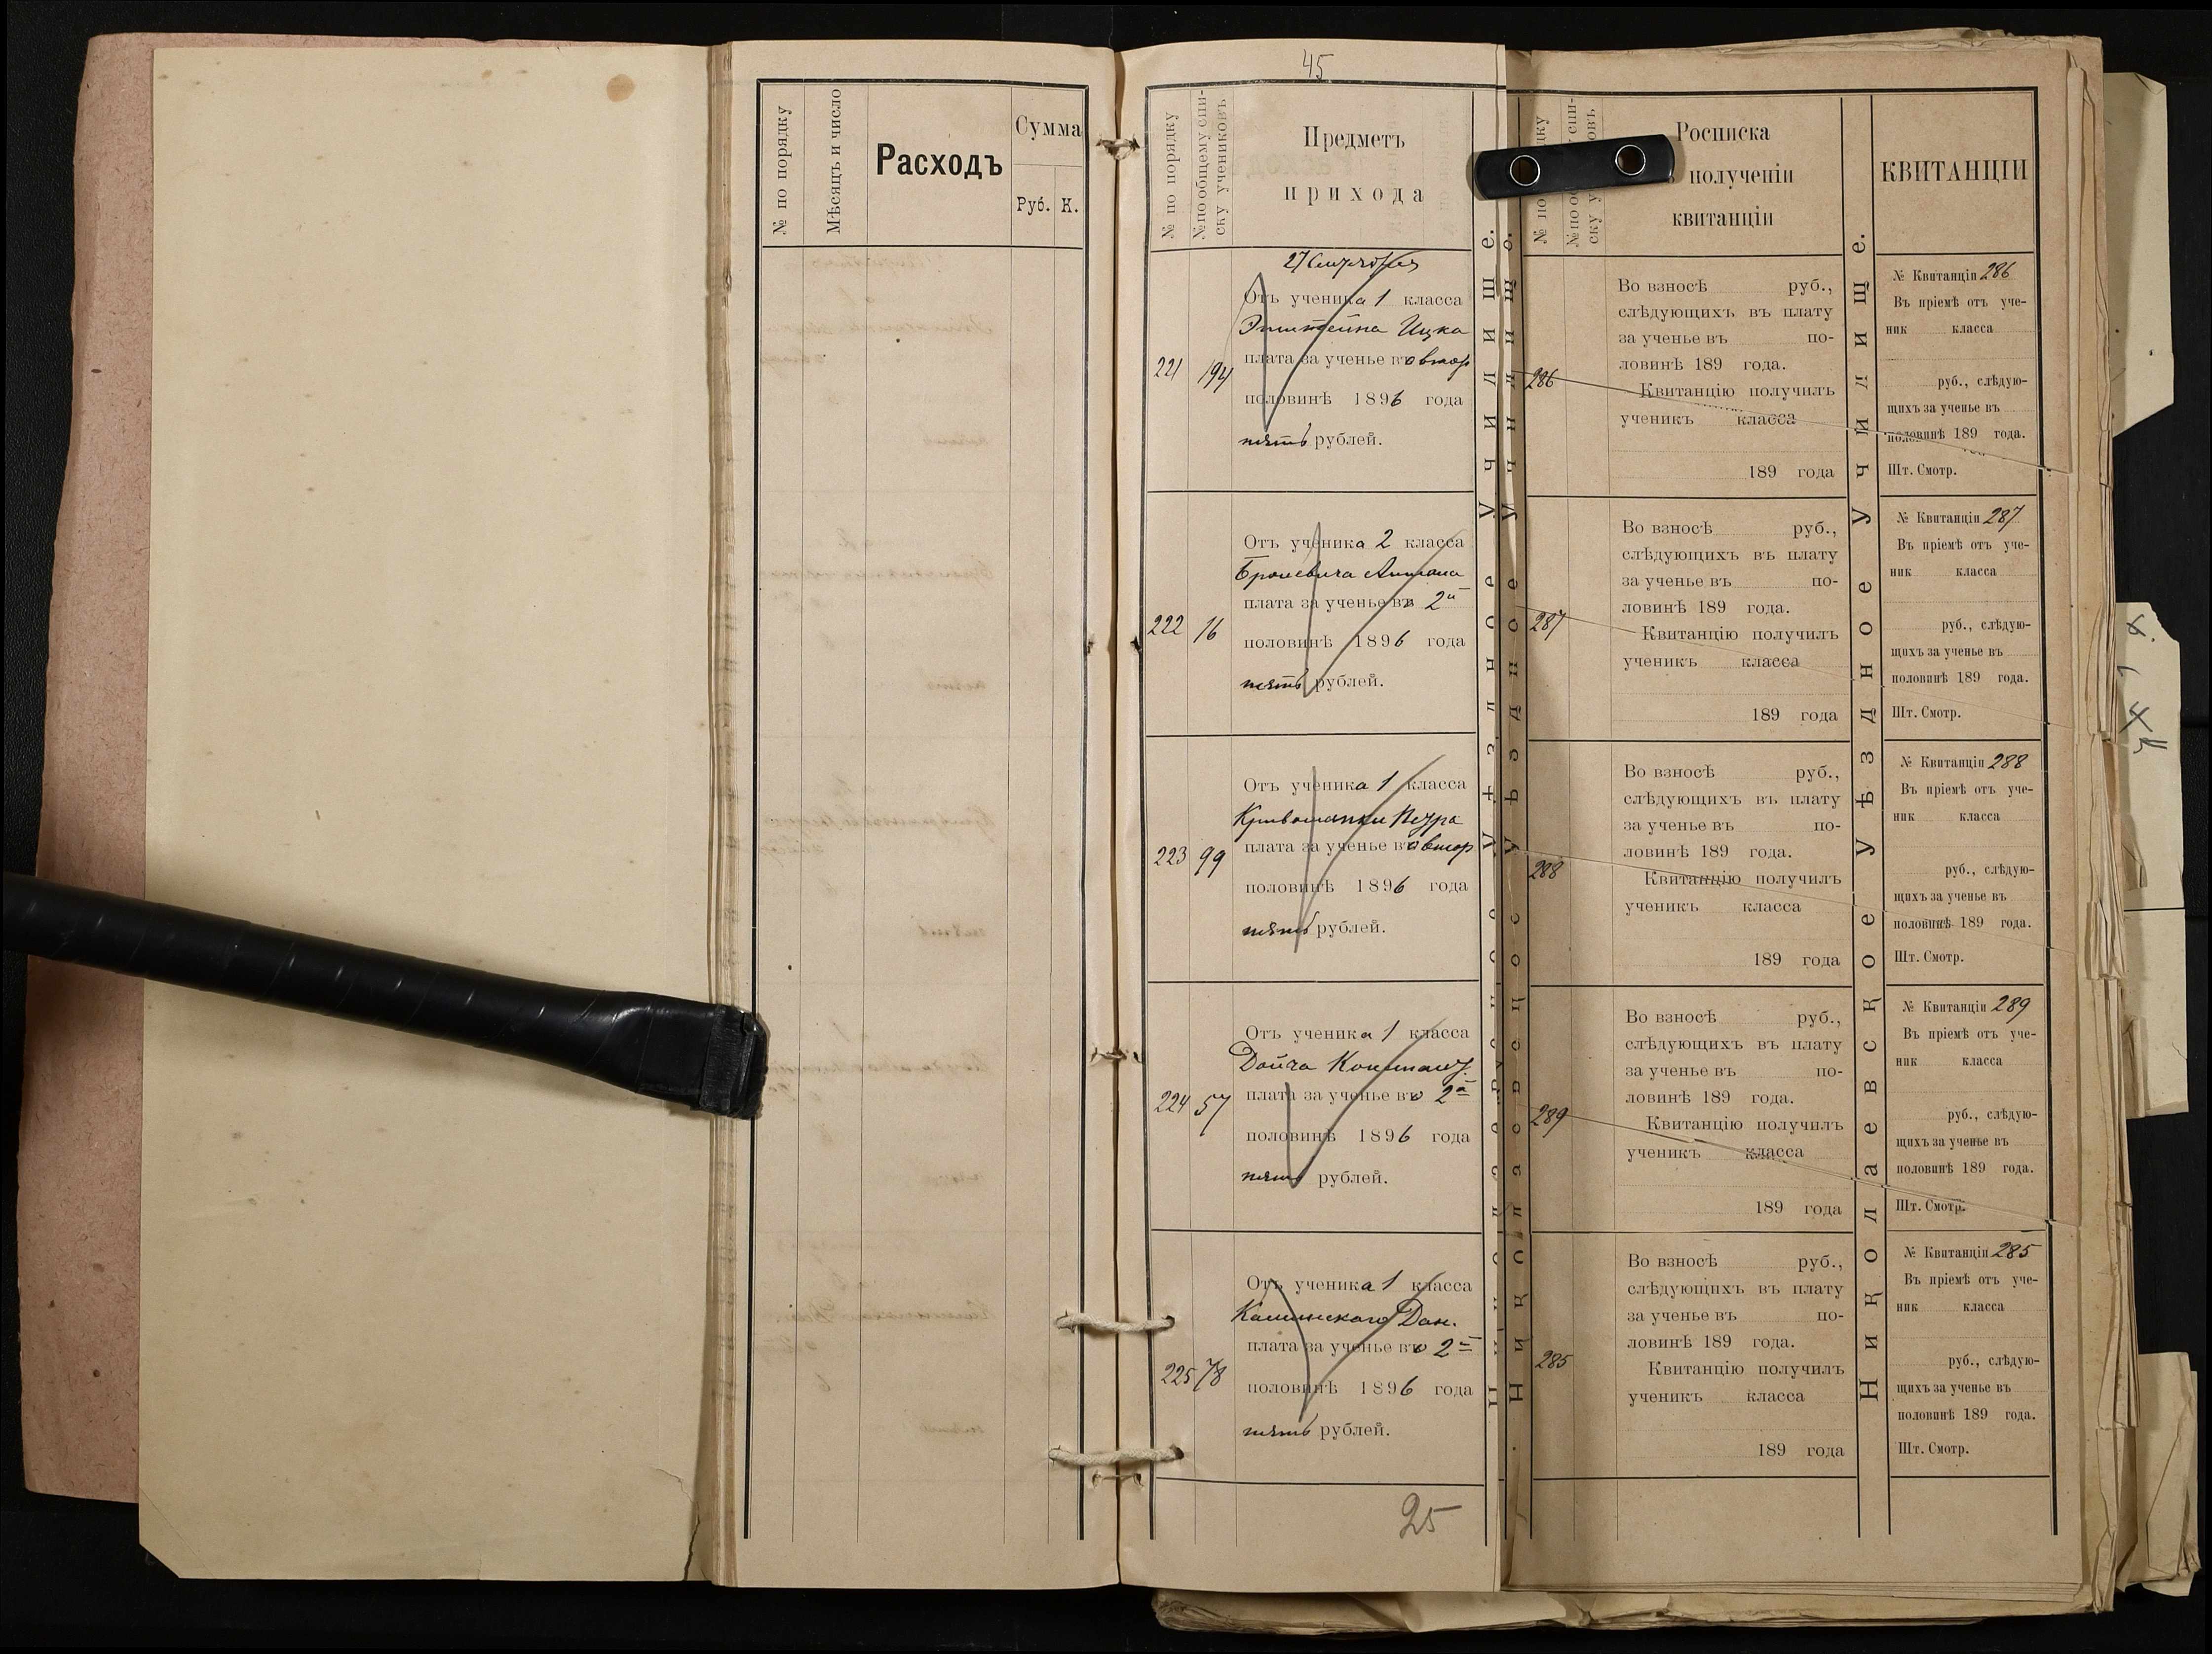 № по порядку
Мѣсяцъ и число
Расходъ
Сумма
Руб. К.
45
№ по порядку
№ по общему спи-
ску учениковъ
Предметъ
прихода
221 194
Отъ ученика 1 класса
Эпштейна Ицка
плата за ученье во втор
половинѣ 1896 года
пять рублей.
222 16
Отъ ученика 2 класса
Броневича Антона
плата за ученье въ 2й
половинѣ 1896 года
пять рублей.
223 99
Отъ ученика 1 класса
Кривошапки Петра
плата за ученье во втор
половинѣ 1896 года
пять рублей.
224 57
Отъ ученика 1 класса
Дойча
плата за ученье во 2й
половинѣ 1896 года
пять рублей.
225 78
Отъ ученика 1 класса
Дан.
плата за ученье во 2й
половинѣ 1896 года
пять рублей.
25
Уѣздное Училище.
Николаевское Уѣздное Училище.
Росписка
полученіи
квитанціи
286
Во взносѣ руб.,
слѣдующихъ въ плату
за ученье въ по-
ловинѣ 189 года.
Квитанцію получилъ
ученикъ класса
189 года
287
Во взносѣ руб.,
слѣдующихъ въ плату
за ученье въ по-
ловинѣ 189 года.
Квитанцію получилъ
ученикъ класса
189 года
288
Во взносѣ руб.,
слѣдующихъ въ плату
за ученье въ по-
ловинѣ 189 года.
Квитанцію получилъ
ученикъ класса
189 года
289
Во взносѣ руб.,
слѣдующихъ въ плату
за ученье въ по-
ловинѣ 189 года.
Квитанцію получилъ
ученикъ класса
189 года
285
Во взносѣ руб.,
слѣдующихъ въ плату
за ученье въ по-
ловинѣ 189 года.
Квитанцію получилъ
ученикъ класса
189 года
Николаевское Уѣздное Училище.
КВИТАНЦІИ
№ Квитанціи 286
Въ пріемѣ отъ уче-
ник класса
руб., слѣдую-
щихъ за ученье въ
половинѣ 189 года.
Шт. Смотр.
№ Квитанціи 287
Въ пріемѣ отъ уче-
ник класса
руб., слѣдую-
щихъ за ученье въ
половинѣ 189 года.
Шт. Смотр.
№ Квитанціи 288
Въ пріемѣ отъ уче-
ник класса
руб., слѣдую-
щихъ за ученье въ
половинѣ 189 года.
Шт. Смотр.
№ Квитанціи 289
Въ пріемѣ отъ уче-
ник класса
руб., слѣдую-
щихъ за ученье въ
половинѣ 189 года.
Шт. Смотр.
№ Квитанціи 285
Въ пріемѣ отъ уче-
ник класса
руб., слѣдую-
щихъ за ученье въ
половинѣ 189 года.
Шт. Смотр.